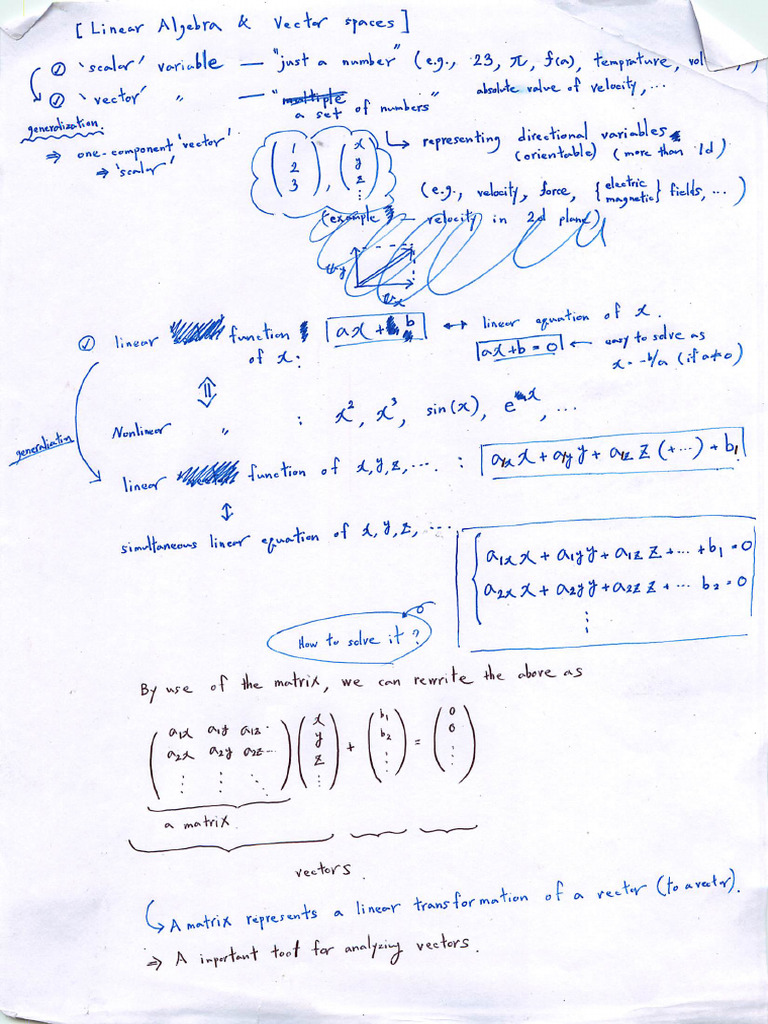 [Linear Algebra & Vector spaces]
'scalar' variable — "just a number" (e.g., 23, π, f(a), temprature, vol
'vector' 〃 — "multiple a set of numbers" absolute value of velocity, ...
generalization
⇒ one-component 'vector'
⇒ 'scalar'
(1 2 3), (x y z ⋮)
representing directional variables
(orientable) (more than 1d)
(e.g., velocity, force, {electric magnetic} fields, ...)
(example — velocity in 2d plane)
vy
vx
linear function ax + b ↔ linear equation of x.
of x:
ax+b=0 ← easy to solve as
x = -b/a (if a≠0)
⇕
Nonlinear 〃 : x², x³, sin(x), eˣ, ...
generalization
linear function of x,y,z,... : a1x x + a1y y + a1z z (+...) + b1
↕
simultaneous linear equation of x,y,z, ...
a1x x + a1y y + a1z z + ... + b1 = 0
a2x x + a2y y + a2z z + ... b2 = 0
⋮
How to solve it?
By use of the matrix, we can rewrite the above as
(a1x a1y a1z.. a2x a2y a2z... ⋮ ⋮ ⋱) (x y z ⋮) + (b1 b2 ⋮) = (0 0 ⋮)
a matrix
vectors.
↳ A matrix represents a linear transformation of a vector (to a vector).
⇒ A important tool for analyzing vectors.